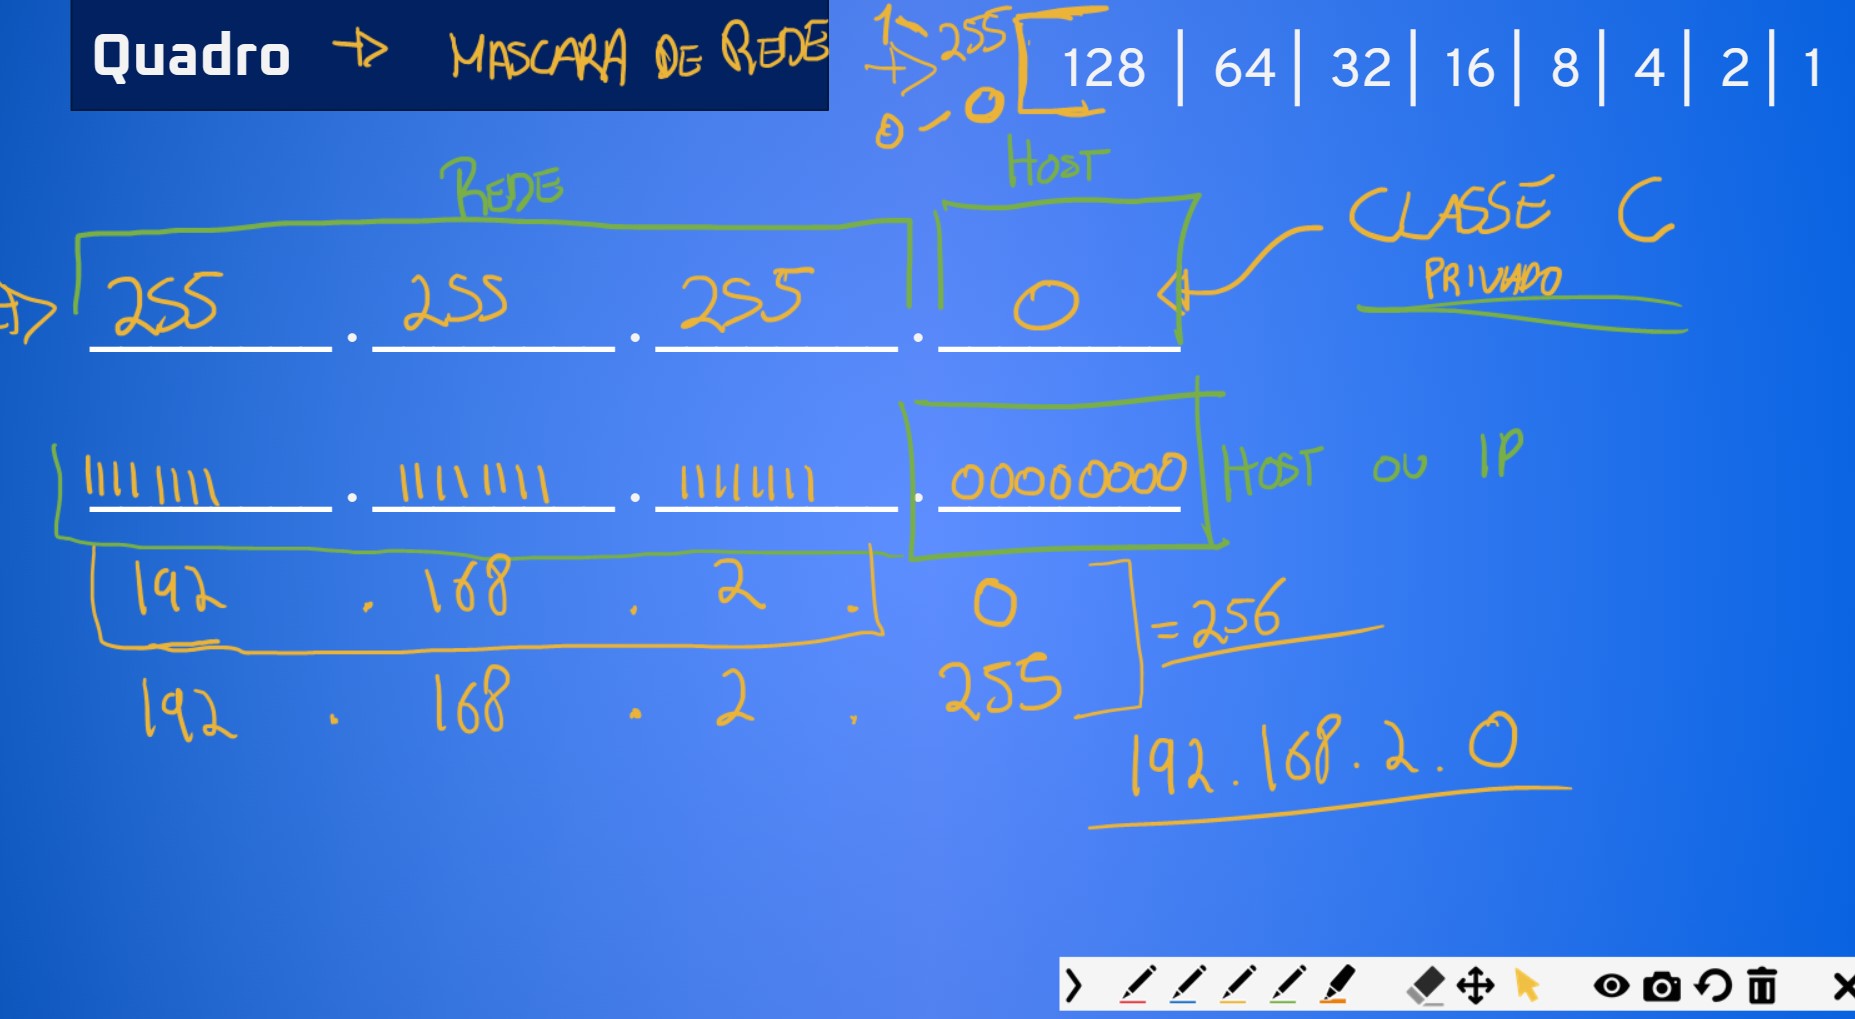 Quadro → MASCARA DE REDE
1 - 255
0 - 0
128 | 64 | 32 | 16 | 8 | 4 | 2 | 1
REDE HOST
CLASSE C
PRIVADO
255 . 255 . 255 . 0
11111111 . 11111111 . 11111111 . 00000000 HOST OU IP
192 . 168 . 2 . 0
= 256
192 . 168 . 2 . 255
192.168.2.0